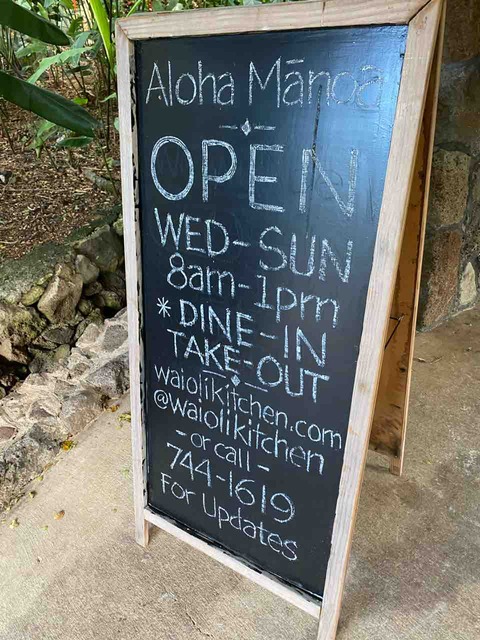 Aloha Mānoa
OPEN
WED-SUN
8am-1pm
*DINE-IN
TAKE-OUT
waiolikitchen.com
@waiolikitchen
-or call-
744-1619
For Updates